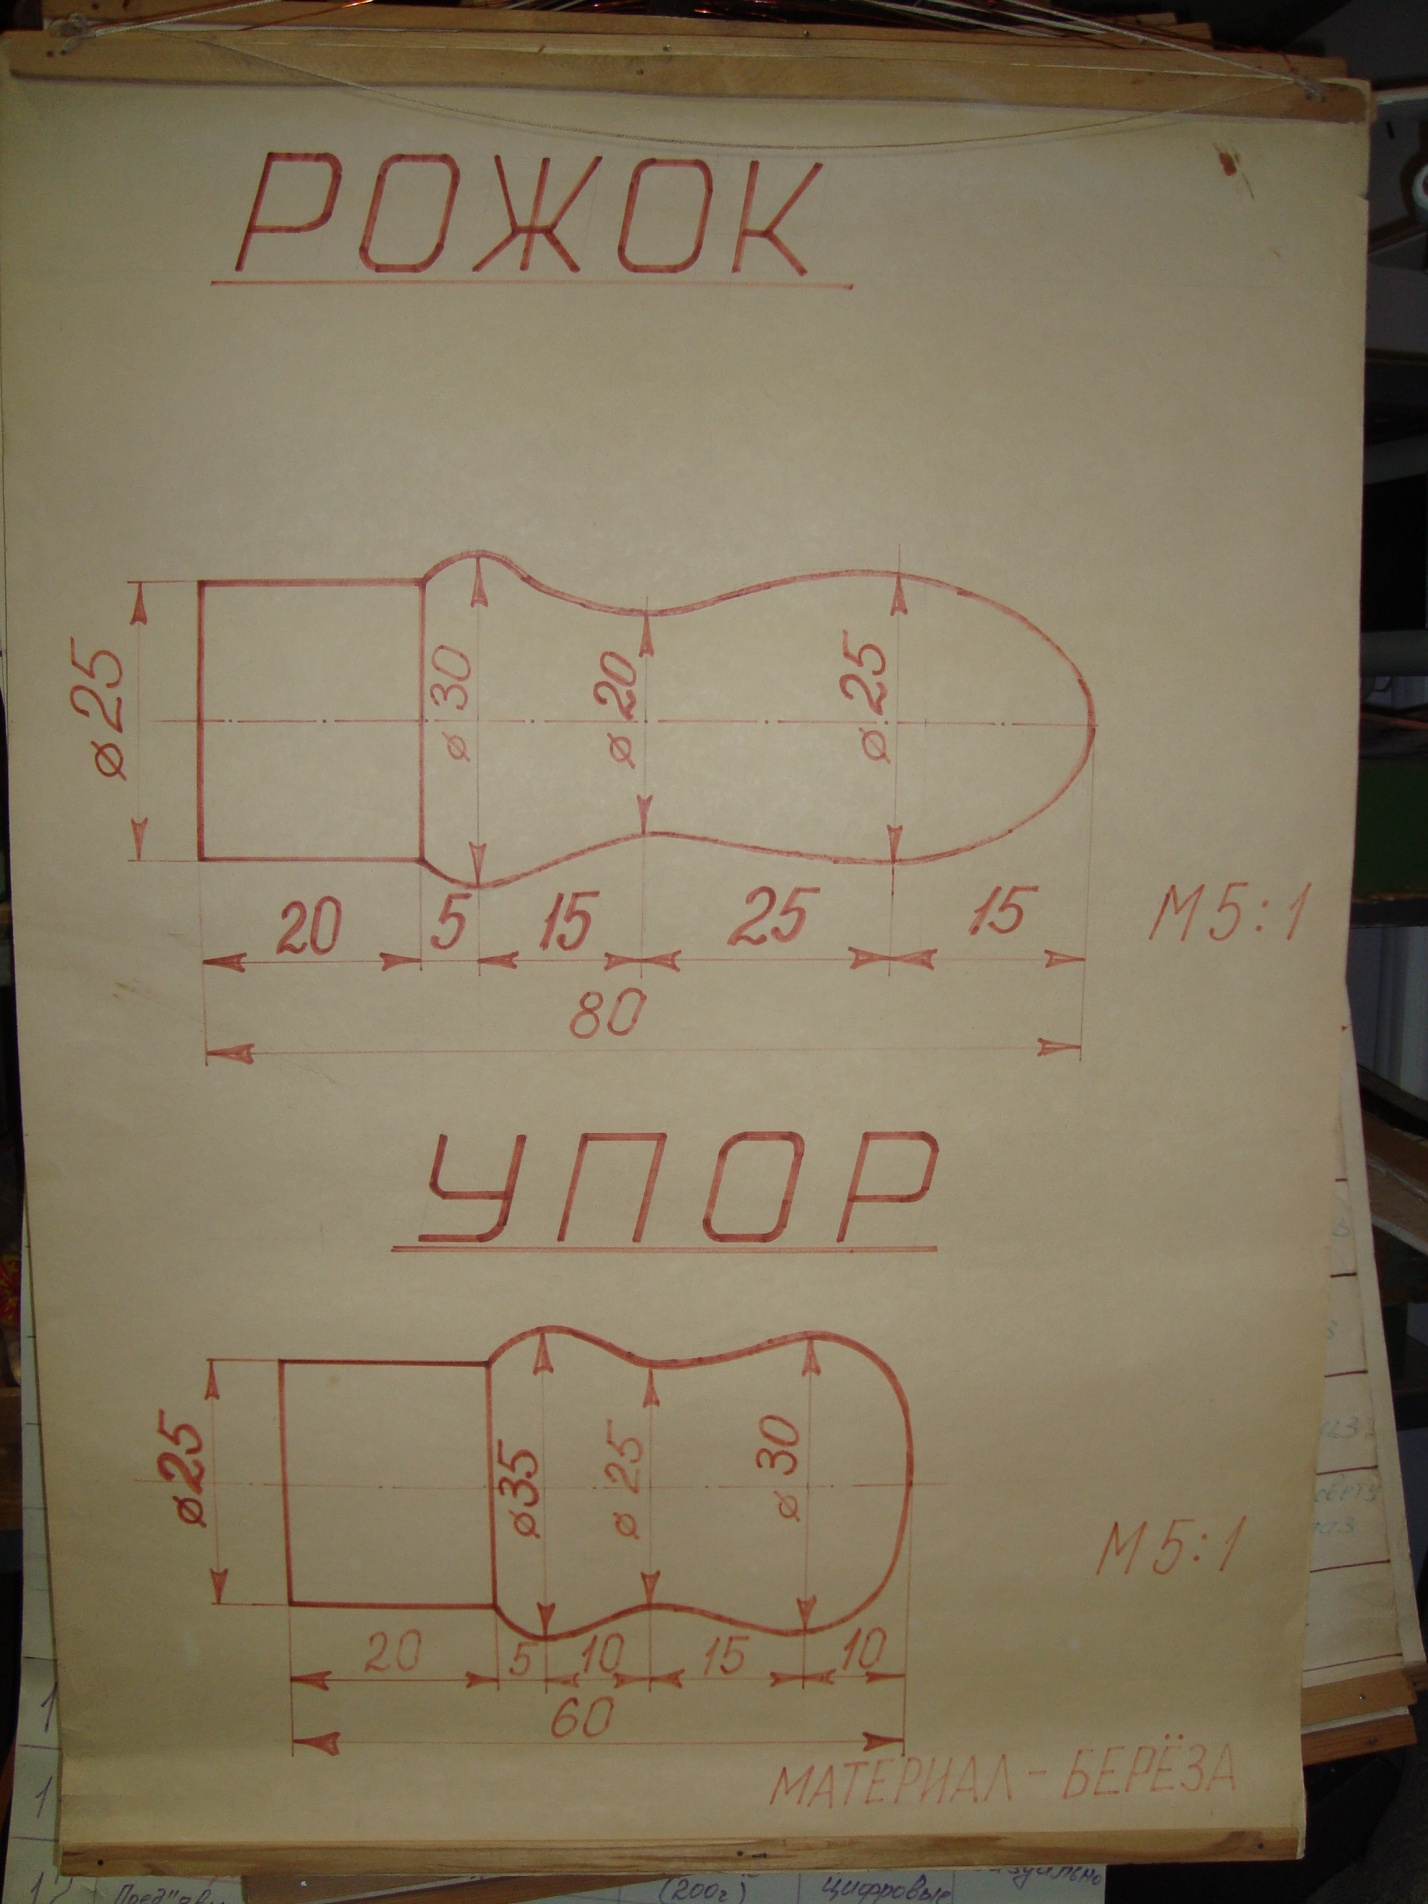 РОЖОК
⌀25
⌀30
⌀20
⌀25
20 5 15 25 15
М5:1
80
УПОР
⌀25
⌀35
⌀25
⌀30
М5:1
20 5 10 15 10
60
МАТЕРИАЛ - БЕРЁЗА
(200г)
цифровые